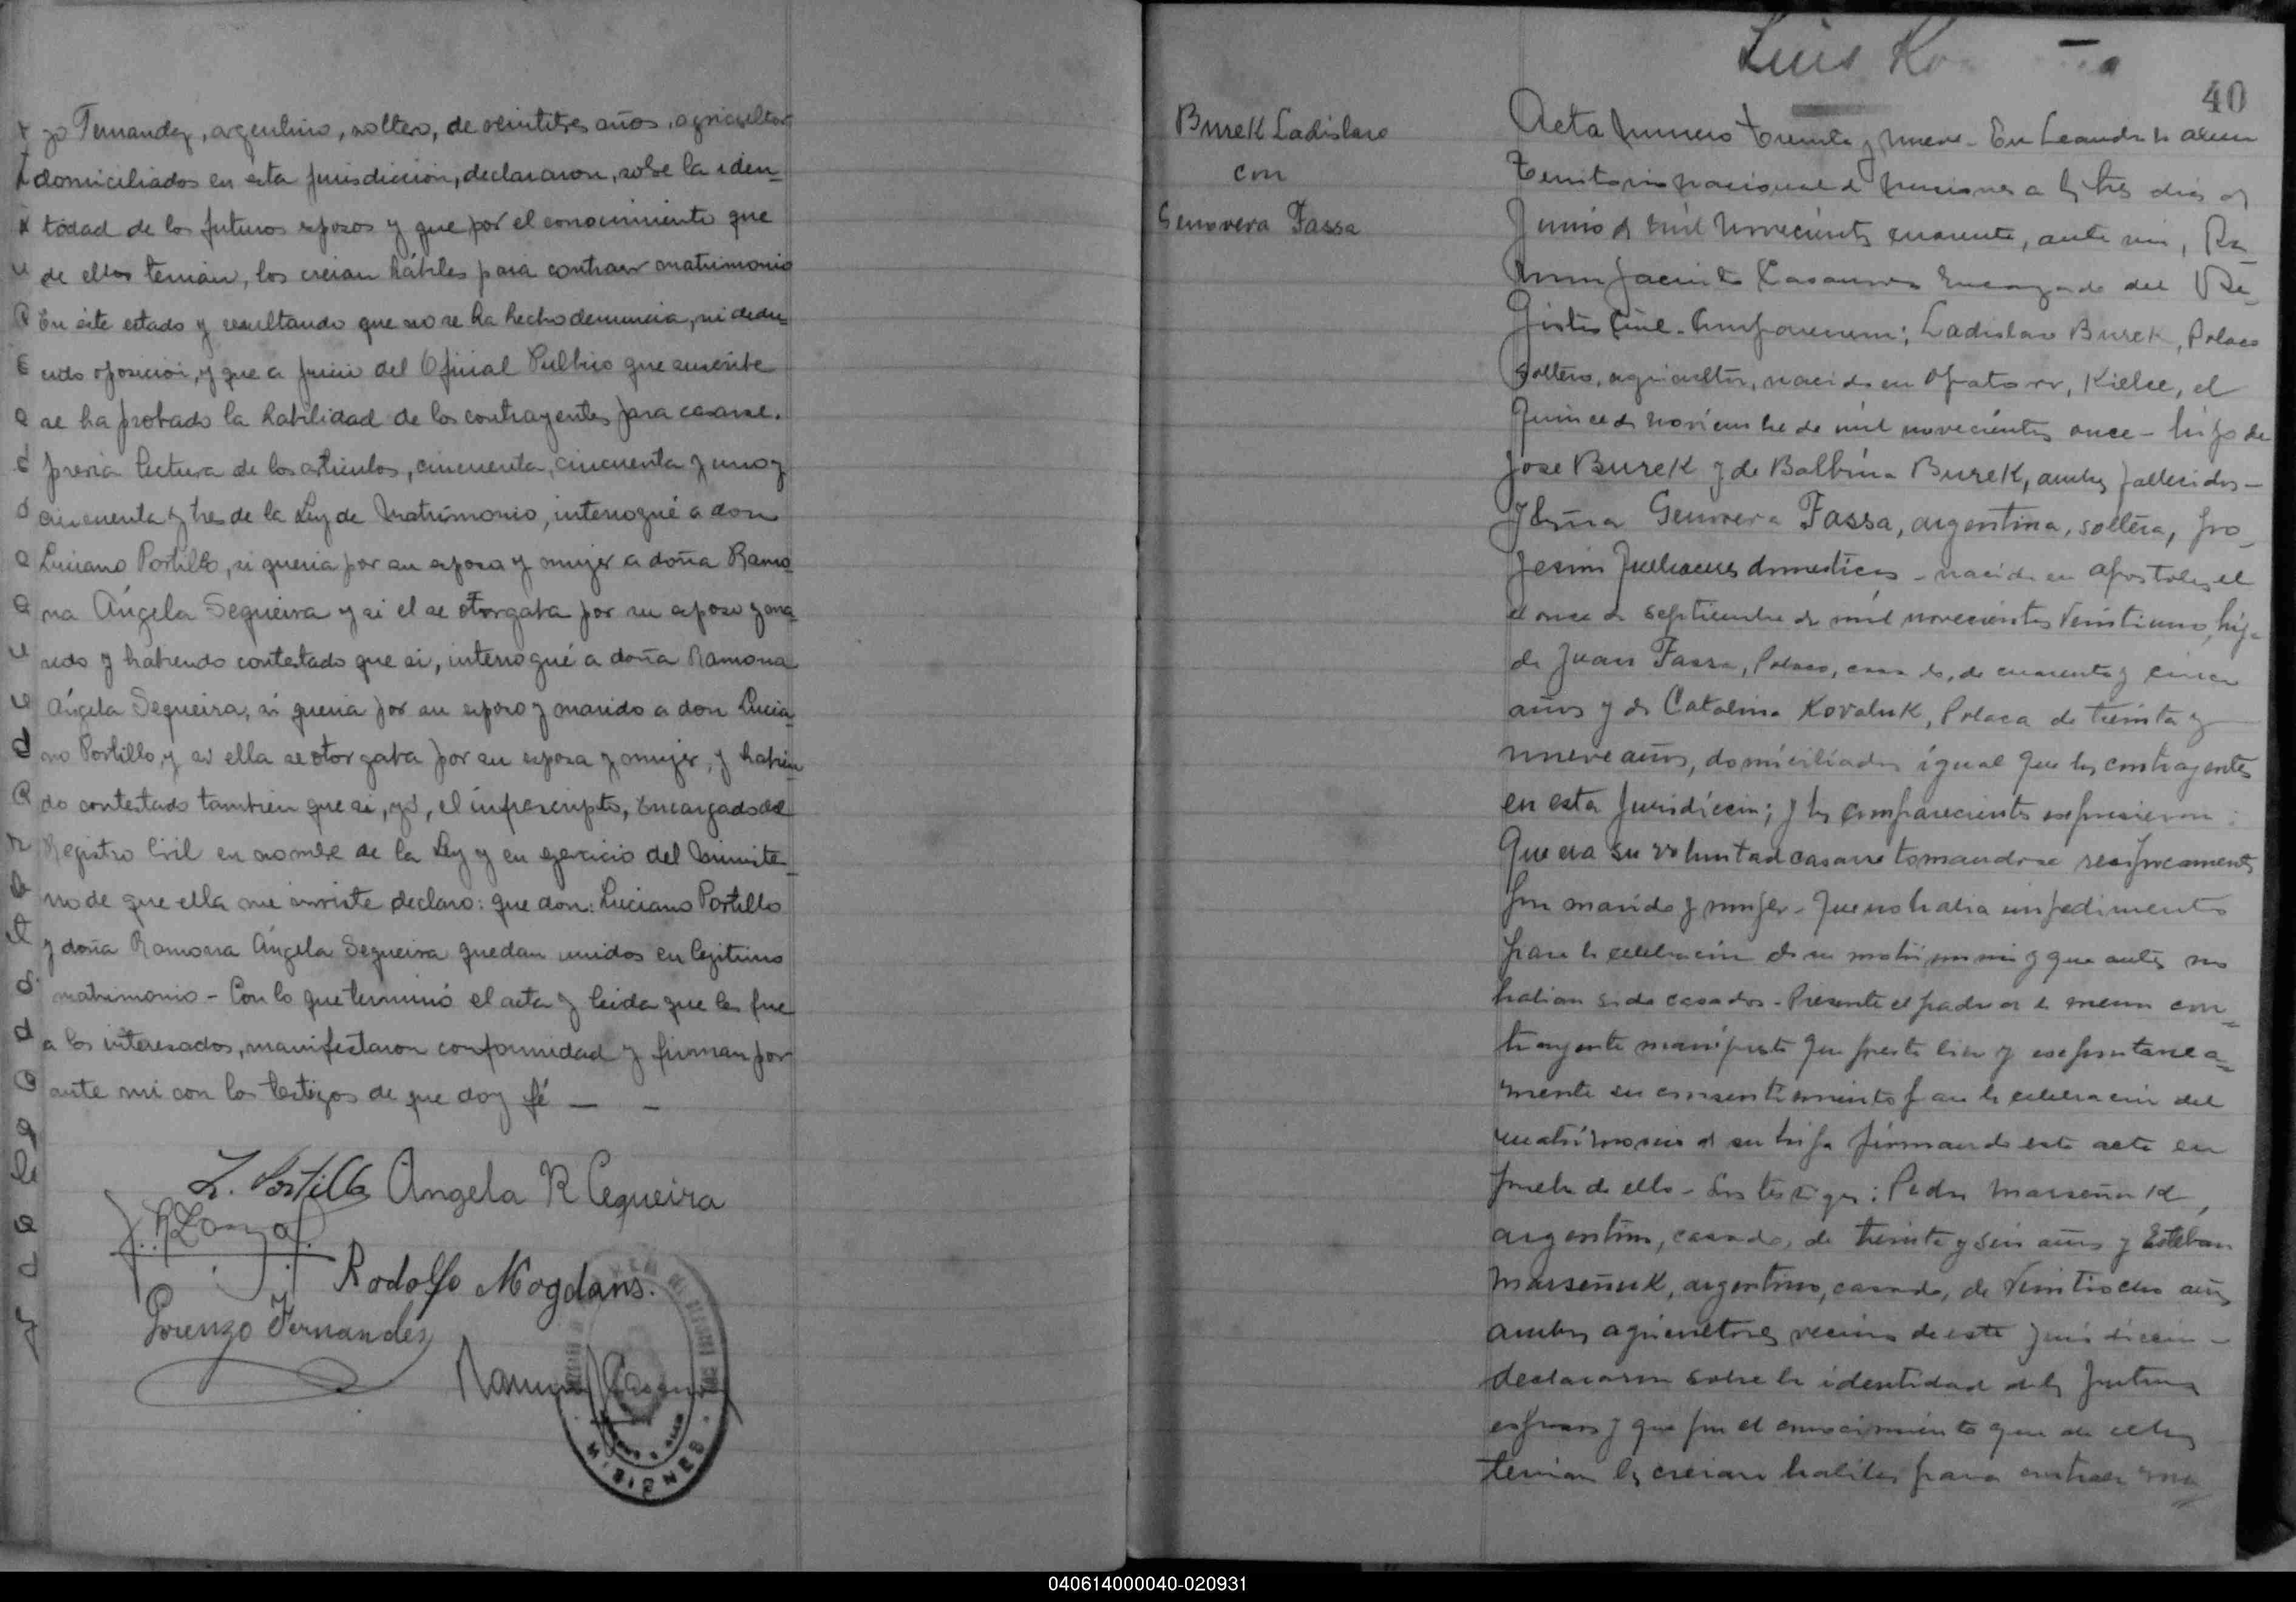 zo Fernandez, argentino, soltero, de veintitres años, agricultor
domiciliados en ésta jurisdiccion, declararon, sobe la iden-
tidad de los futuros esposos y que por el conocimiento que
de ellos tenian, los creian hábiles para contraer matrimonio
En éste estado y resultando que no se ha hecho denuncia, ni dedu-
cido oposicion, y que a juicio del Oficial Publico que suscribe
se ha probado la habilidad de los contrayentes para casarse.
previa lectura de los articulos, cincuenta, cincuenta y uno y
cincuenta y tres de la Ley de Matrimonio, interrogué a don
Luciano Portillo, si queria por su esposa y mujer a doña Ramo-
na Ángela Segueira y si el se otorgaba por su esposo y ma-
rido y habiendo contestado que si, interrogué a doña Ramona
Ángela Segueira, si queria por su esposo y marido a don Lucia-
no Portillo, y si ella se otorgaba por su esposa y mujer, y habien-
do contestado tambien que si, yó, el infrascripto, Encargado del
Registro Civil en nombe de la Ley y en ejercicio del Ministe-
rio de que ella me inviste declaro: que don: Luciano Portillo
y doña Ramona Ángela Segueira quedan unidos en legitimo
matrimonio - Con lo que terminó el acta y leida que les fue
a los interesados, manifestaron conformidad y firman por
ante mi con los testigos de que doy fé — —
L. Portillo Angela R Cequeira
Rodolfo Mogdans.
Lorenzo Fernandez
Ramon
MISIONES
Luis Ko
40
Burek Ladislao
con
Genovera Fassa
Acta numero treinta y nueve - En Leandro N Alem
Territorio nacional de Misiones a los tres dias de
Junio de mil novecientos cuarenta, ante mi, Ra-
mon Jacinto Casanova Encargado del Re-
gistro Civil - Comparecieron; Ladislao Burek, Polaco
Soltero, agricultor, nacido en Opatow, Kielce, el
quince de noviembre de mil novecientos once - hijo de
Jose Burek y de Balbina Burek, ambos fallecidos -
y doña Genovera Fassa, argentina, soltera, pro-
fesion quehaceres domesticos - nacida en apostoles el
el once de septiembre de mil novecientos veintiuno, hija
de Juan Fassa, Polaco, casado, de cuarenta y cinco
años y de Catalina Kovaluk, Polaca de treinta y
nueve años, domiciliados igual que los contrayentes
en esta Jurisdiccion; y los comparecientes expresaron:
Que era su voluntad casarse tomandose reciprocamente
por marido y mujer - Que no habia impedimento
para la celebracion de su matrimonio y que antes no
habian sido casados - Presente el padre de la menor con-
trayente manifiesta que presta libre y espontanea-
mente su consentimiento para la celebracion del
matrimonio de su hija firmando este acta en
prueba de ello - Los testigos: Pedro Marseñuk,
argentino, casado, de treinta y seis años y Esteban
Marseñuk, argentino, casado, de veintiocho años
ambos agricultores vecinos de esta jurisdiccion -
declararon sobre la identidad de los futuros
esposos y que por el conocimiento que de ellos
tenian los creian habiles para contraer ma-
040614000040-020931